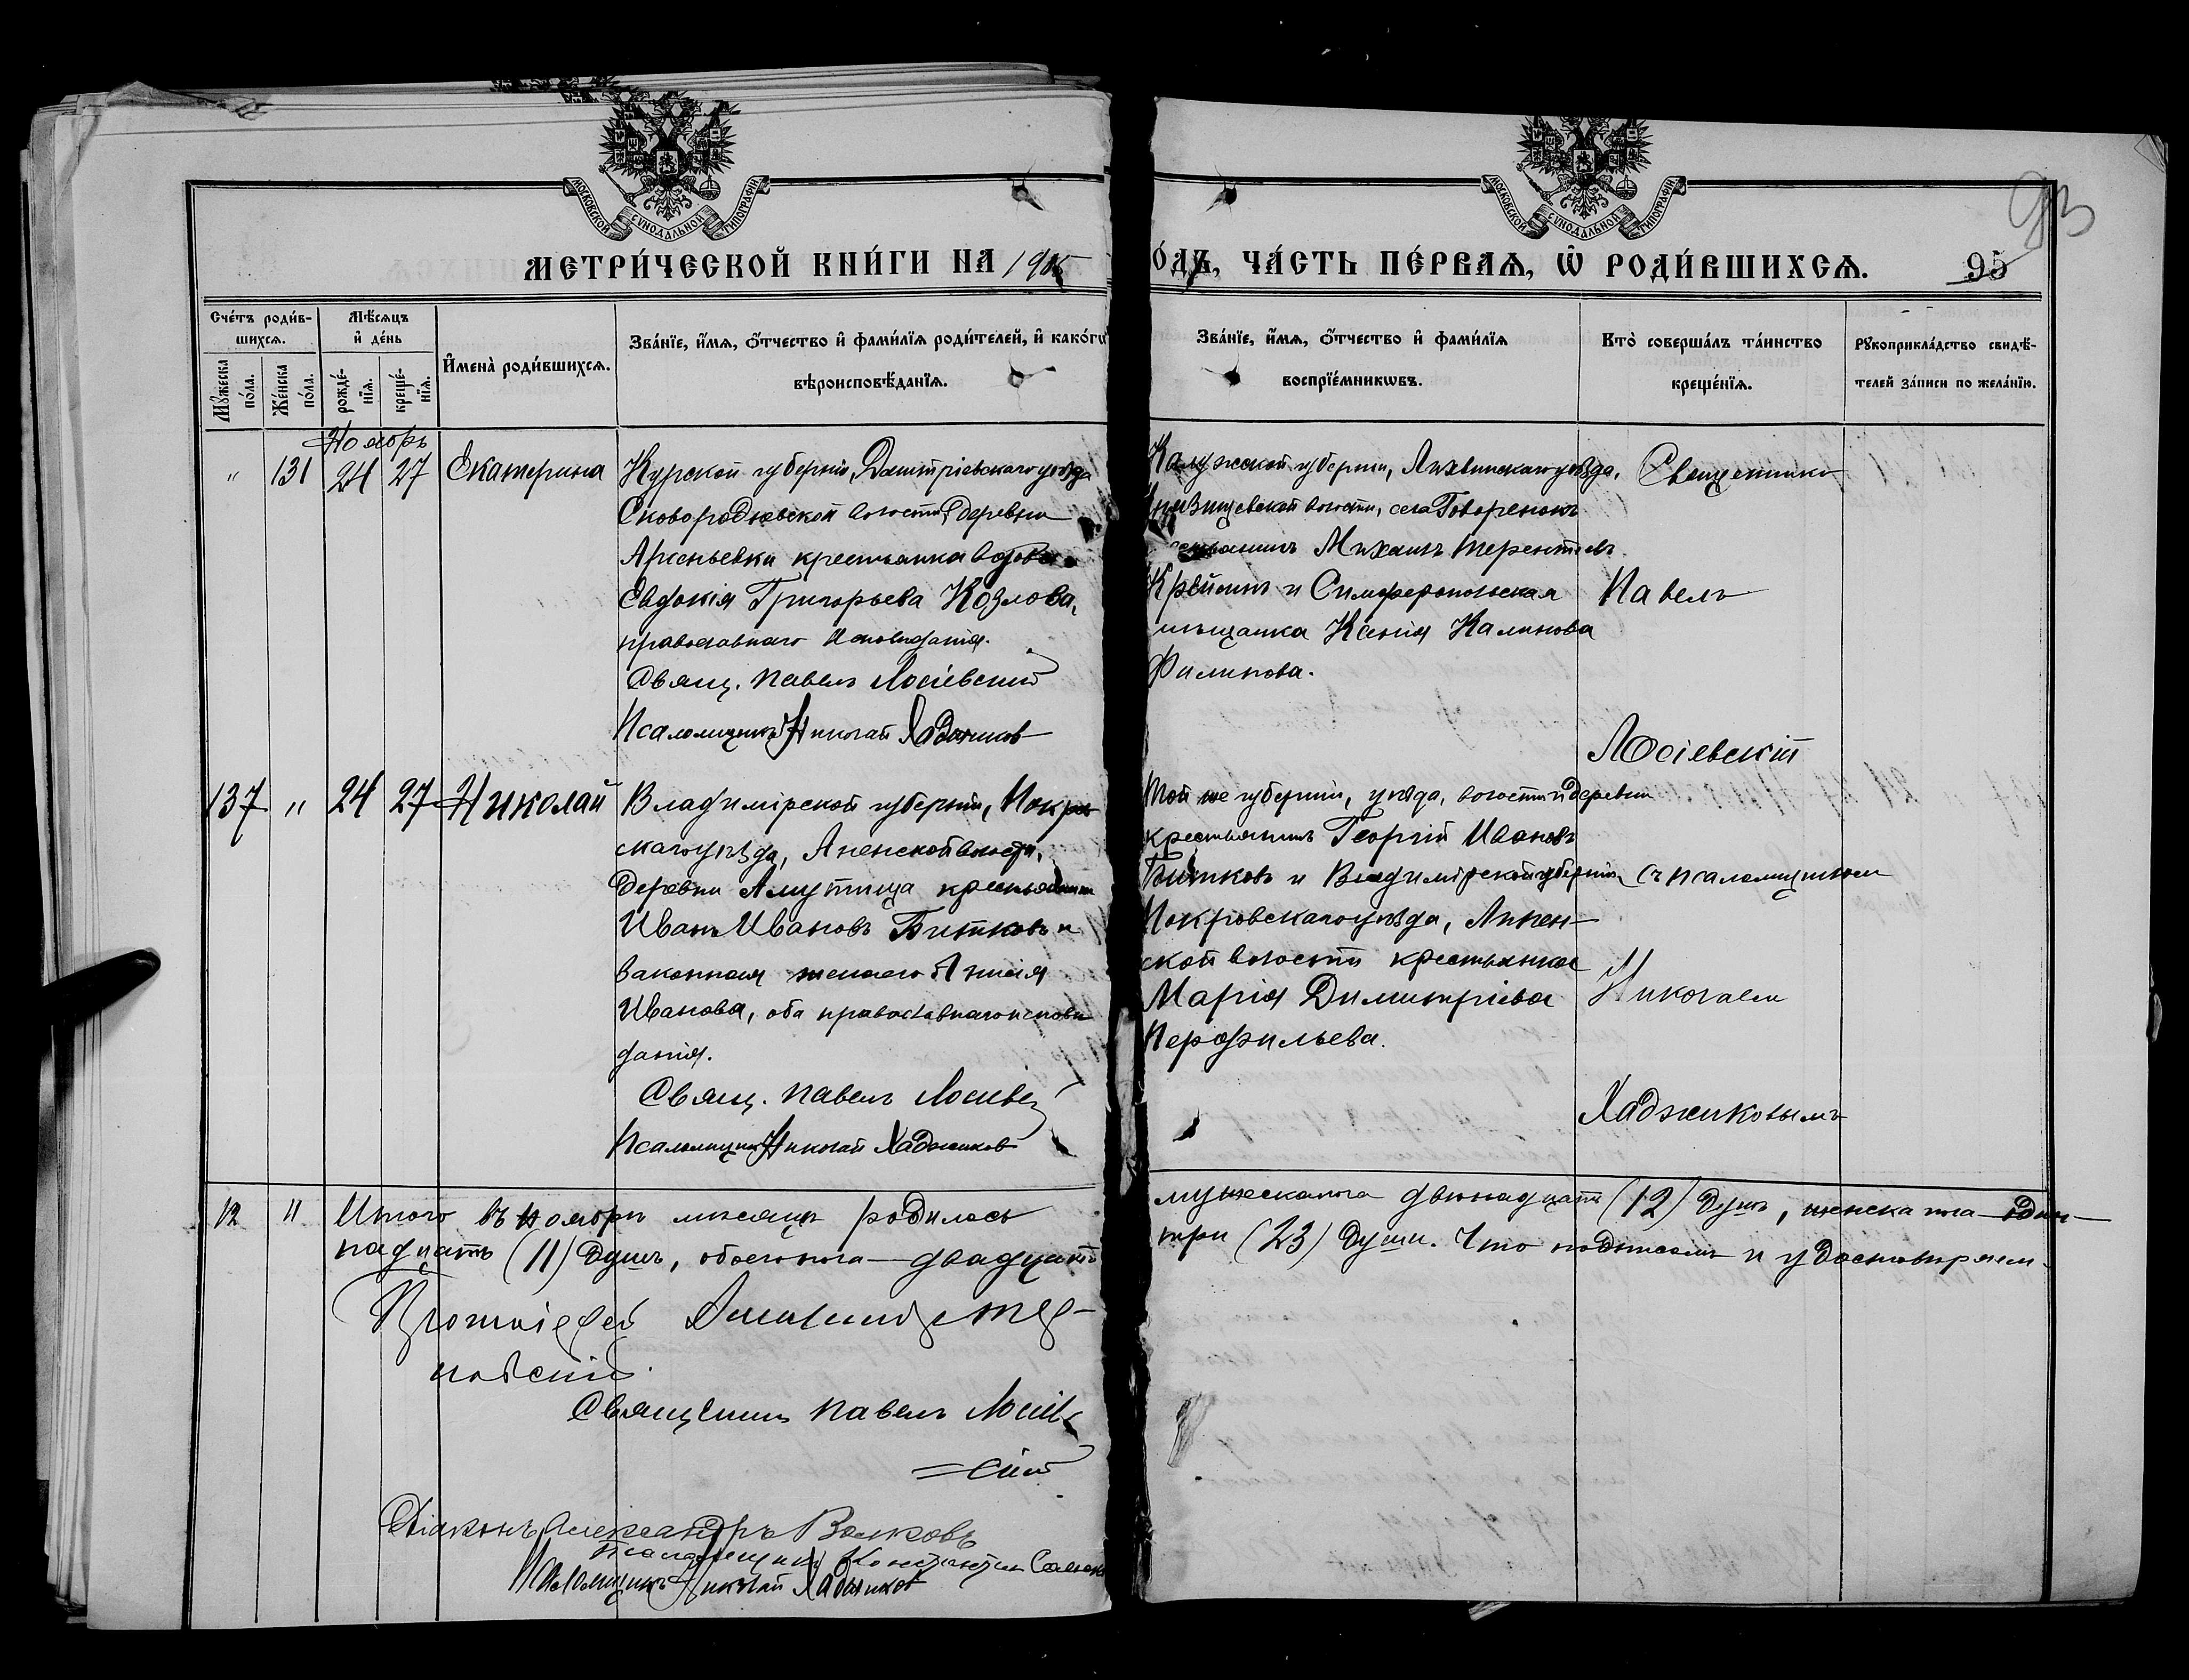 МОСКОВСКОЙ СѴНОДАЛЬНОЙ ТИПОГРАФІИ
МОСКОВСКОЙ СѴНОДАЛЬНОЙ ТИПОГРАФІИ
93
МЕТРИ́ЧЕСКОЙ КНИ́ГИ НА 1905
О́ДЪ, ЧА́СТЬ ПЕ́РВАЯ, Ѡ РОДИ́ВШИХСЯ.
95
Сче́тъ роди́в-
шихся.
Мѣ́сяцъ
и҆ де́нь
Мꙋ́жеска
по́ла.
Же́нска
по́ла.
рожде́-
нїя.
креще́-
нїя.
И҆мена̀ роди́вшихся.
Зва́нїе, и҆́мя, ѻ҆́тчество и҆ фами́лїя роди́телей, и҆ како́гѡ
вѣроисповѣ́данїя.
Зва́нїе, и҆́мя, ѻ҆́тчество и҆ фами́лїя
воспрїе́мникѡвъ.
Кто̀ соверша́лъ та́инство
креще́нїя.
Рꙋкоприкла́дство свидѣ́-
телей за́писи по жела́нїю.
Ноябрь
" 131 24 27 Екатерина
Курской губерніи, Дмитріевскаго уѣзда
волости, деревни
Арсеньевки крестьянка вдова
Евдокія Григорьева Козлова,
православнаго исповѣданія.
Свящ. Павелъ Лосіевскій
Псаломщикъ Николай Хаджиковъ
Калужской губерніи, Лихвинскаго уѣзда,
волости, села
Михаилъ Терентьевъ
и Симферопольская
мѣщанка Ксенія Калинова
Филинова.
Священникъ
Павелъ
Лосіевскій
137 " 24 27 Николай
Владимірской губерніи, Покров
скаго уѣзда, волости,
деревни крестьянинъ
Иванъ Ивановъ Битковъ и
законная жена его Анисія
Иванова, оба православнаго исповѣ
данія.
Свящ. Павелъ Лосіев
Псаломщикъ Николай Хаджиковъ
Той же губерніи, уѣзда, волости и деревни
крестьянинъ Георгій Ивановъ
Битковъ и Владимірской губерніи
Покровскаго уѣзда,
ской волости крестьянка
Марія Димитріева
Перфильева.
съ псаломщикомъ
Николаемъ
Хаджиковымъ
12 11 Итого въ Ноябрѣ мѣсяцѣ родилось
мужеска пола двѣнадцать (12) душъ, женска пола — один-
надцать (11) душъ, обоего пола — двадцать
три (23) души. Что подписомъ и удостовѣряемъ
Протоіерей
Священникъ Павелъ Лосіев
=скій
Діаконъ Александръ Волковъ
Псаломщикъ Константинъ
Псаломщикъ Николай Хаджиковъ